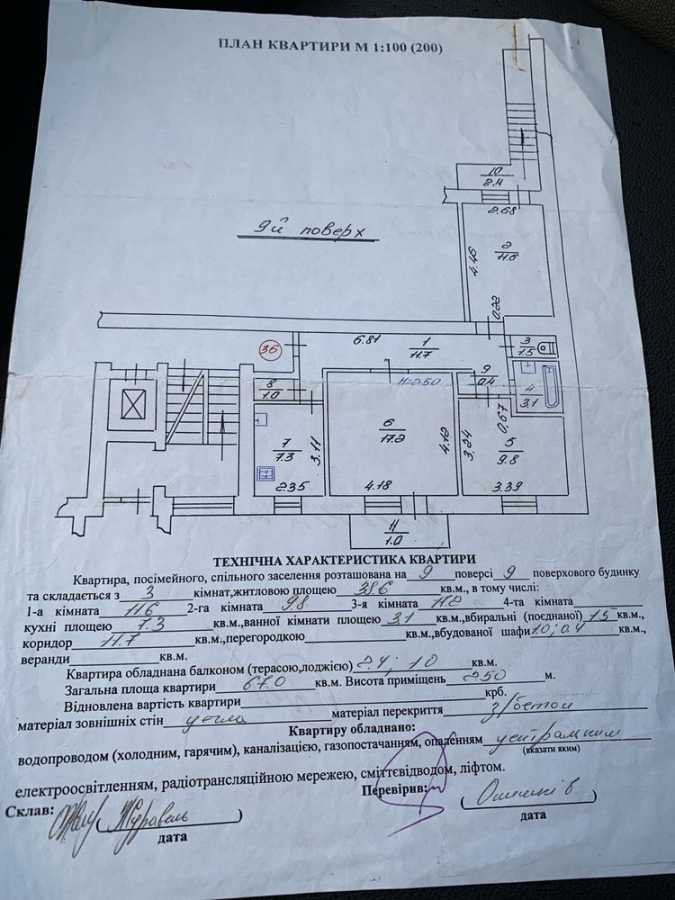 ПЛАН КВАРТИРИ М 1:100 (200)
10
2.4
2.68
9й поверх
2
11.6
4.46
0.22
36
6.81
1
11.7
3
1.5
8
1.0
H=2.50
9
0.4
4
3.1
7
7.3
3.11
6
17.2
4.12
3.24
0.67
5
9.8
2.35
4.18
3.39
11
1.0
ТЕХНІЧНА ХАРАКТЕРИСТИКА КВАРТИРИ
Квартира, посімейного, спільного заселення розташована на 9 поверсі 9 поверхового будинку
та складається з 3 кімнат,житловою площею 38.6 кв.м., в тому числі:
1-а кімната 11.6 2-га кімната 9.8 3-я кімната 17.2 4-та кімната
кухні площею 7.3 кв.м.,ванної кімнати площею 3.1 кв.м.,вбиральні (поєднаної) 1.5 кв.м.,
коридор 11.7 кв.м.,перегородкою кв.м.,вбудованої шафи 1.0; 0.4 кв.м.,
веранди кв.м.
Квартира обладнана балконом (терасою,лоджією) 2.4; 1.0 кв.м.
Загальна площа квартири 67.0 кв.м. Висота приміщень 2.50 м.
Відновлена вартість квартири крб.
матеріал зовнішніх стін цегла матеріал перекриття з/бетон
Квартиру обладнано:
водопроводом (холодним, гарячим), каналізацією, газопостачанням, опаленням центральним
(вказати яким)
електроосвітленням, радіотрансляційною мережею, сміттєвідводом, ліфтом.
Склав: ( Журавель ) Перевірив: ( )
дата дата